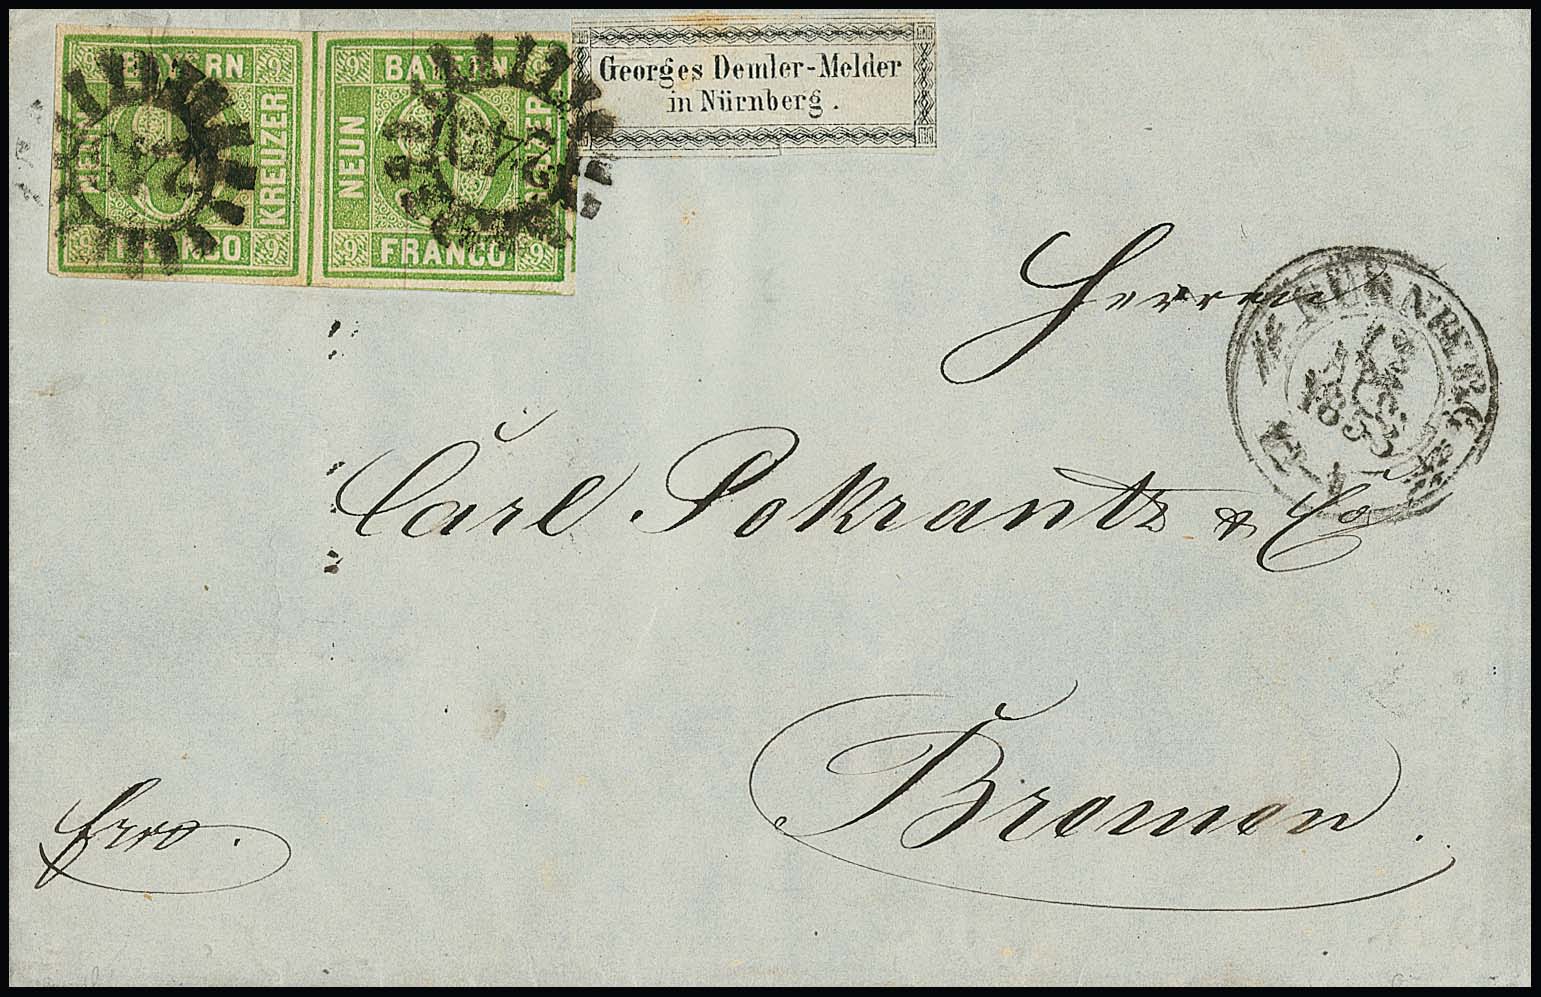 BAYERN
NEUN
KREUZER
FRANCO
9 9 9
BAYERN
NEUN
KREUZER
FRANCO
9 9 9 9
Georges Demler-Melder
in Nürnberg.
NÜRNBERG
1853
Herren
Carl Pokrantz & Co
Bremen.
frco.